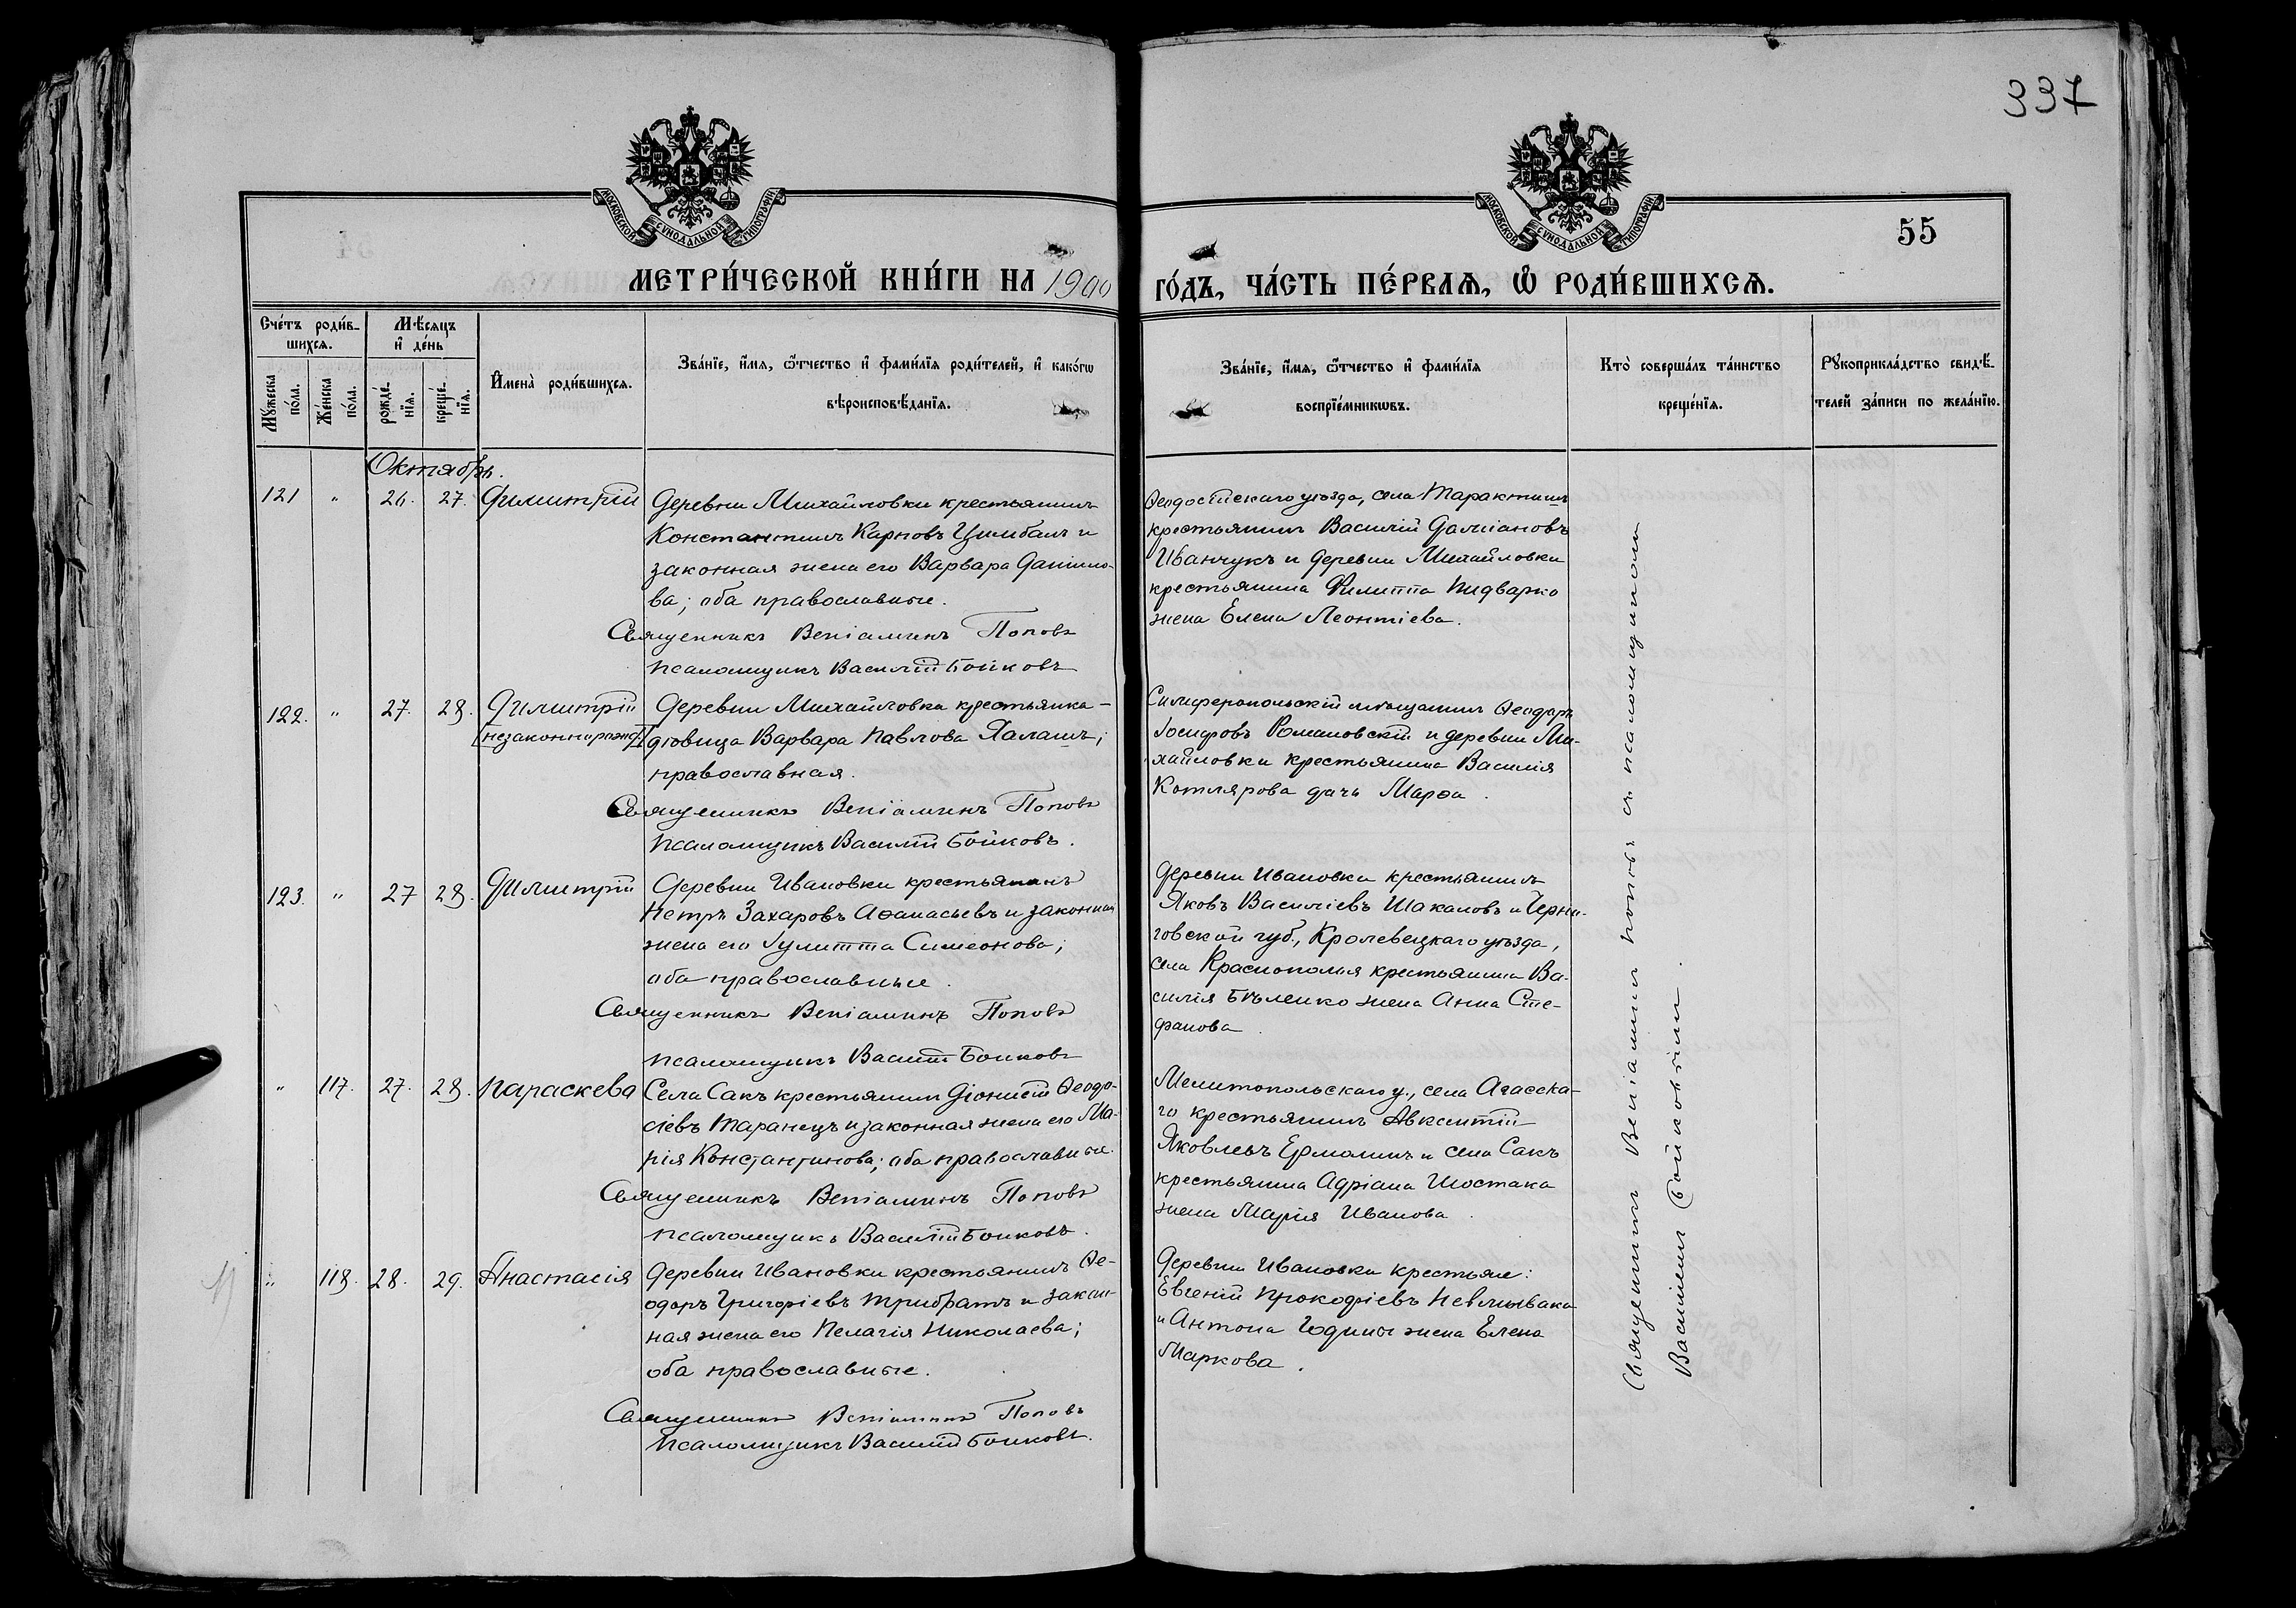 337
МОСКОВСКОЙ СѴНОДАЛЬНОЙ ТИПОГРАФІИ
МОСКОВСКОЙ СѴНОДАЛЬНОЙ ТИПОГРАФІИ
55
МЕТРИ́ЧЕСКОЙ КНИ́ГИ НА 1900 ГО́ДЪ, ЧА́СТЬ ПЕ́РВАѦ, Ѽ РОДИ́ВШИХСѦ.
Сче́тъ роди́в-
шихсѧ.
Мꙋ́жеска по́ла.
Же́нска по́ла.
Мѣ́сяцъ
и҆ де́нь
рожде́-
нїѧ.
креще́-
нїѧ.
И҆мена̀ роди́вшихсѧ.
Зва́нїе, и҆́мѧ, ѻ҆́тчество и҆ фами́лїѧ роди́телей, и҆ како́гѡ
вѣроисповѣ́данїѧ.
Зва́нїе, и҆́мѧ, ѻ҆́тчество и҆ фами́лїѧ
воспрїе́мникѡвъ.
Кто̀ соверша́лъ та́инство
креще́нїѧ.
Рꙋкоприкла́дство свидѣ́-
телей за́писи по жела́нїю.
Октябрь.
121 " 26. 27. Димитрій
Деревни Михайловки крестьянинъ
Константинъ Карповъ Цимбалъ и
законная жена его Варвара Данило-
ва; оба православные.
Священникъ Веніаминъ Поповъ
Псаломщикъ Василій Бойковъ
Ѳеодосійскаго уѣзда, села Таракташъ
крестьянинъ Василій Даміановъ
Иванчукъ и деревни Михайловки
крестьянина Филиппа Пидварко
жена Елена Леонтіева.
122. " 27. 28. Димитрій
[незаконнорожд.]
Деревни Михайловка крестьянка-
дѣвица Варвара Павлова Халашъ;
православная.
Священникъ Веніаминъ Поповъ
Псаломщикъ Василій Бойковъ.
Симферопольскій мѣщанинъ Ѳеодоръ
Іосифовъ Романовскій и деревни Ми-
хайловки крестьянина Василія
Котлярова дочь Марѳа.
123. " 27 28. Димитрій
Деревни Ивановки крестьянинъ
Петръ Захаровъ Аѳанасьевъ и законная
жена его Іулитта Симеонова;
оба православные.
Священникъ Веніаминъ Поповъ
Псаломщикъ Василій Бойковъ
Деревни Ивановки крестьянинъ
Яковъ Василіевъ Шакаловъ и Черни-
говской губ., Кролевецкаго уѣзда,
села Краснополья крестьянина Ва-
силія Бѣленко жена Анна Сте-
фанова.
" 117. 27. 28. Параскева
Села Сакъ крестьянинъ Діонисій Ѳеодо-
сіевъ Таранецъ и законная жена его Ма-
рія Константинова; оба православные.
Священникъ Веніаминъ Поповъ
Псаломщикъ Василій Бойковъ.
Мелитопольскаго у., села
крестьянинъ Авксентій
Яковлевъ Ермолинъ и села Сакъ
крестьянина Адріана Шостака
жена Марія Иванова.
" 118. 28. 29. Анастасія
Деревни Ивановки крестьянинъ Ѳе-
одоръ Григоріевъ Трибратъ и закон-
ная жена его Пелагія Николаева;
оба православные.
Священникъ Веніаминъ Поповъ
Псаломщикъ Василій Бойковъ.
Деревни Ивановки крестьяне:
Евгеній Прокофіевъ Невмывака
и Антона Годины жена Елена
Маркова.
Священникъ Веніаминъ Поповъ съ псаломщикомъ
Василіемъ Бойковымъ.